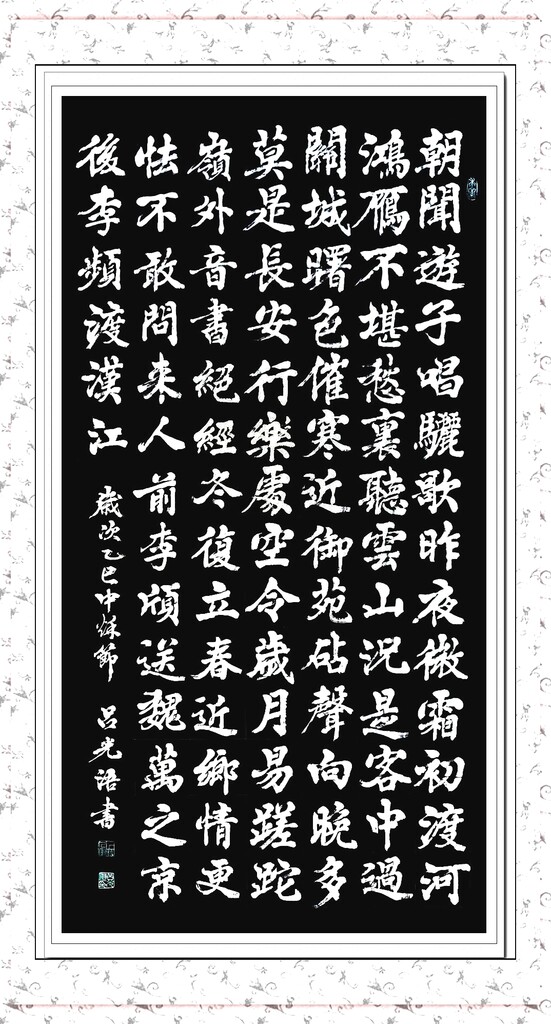 朝聞遊子唱驪歌昨夜微霜初渡河
鴻鴈不堪愁裏聽雲山況是客中過
關城曙色催寒近御苑砧聲向晚多
莫是長安行樂處空令歲月易蹉跎
嶺外音書絕經冬復立春近鄉情更
怯不敢問來人前李頎送魏萬之京
後李頻渡漢江 歲次乙巳中秋節 呂光語書